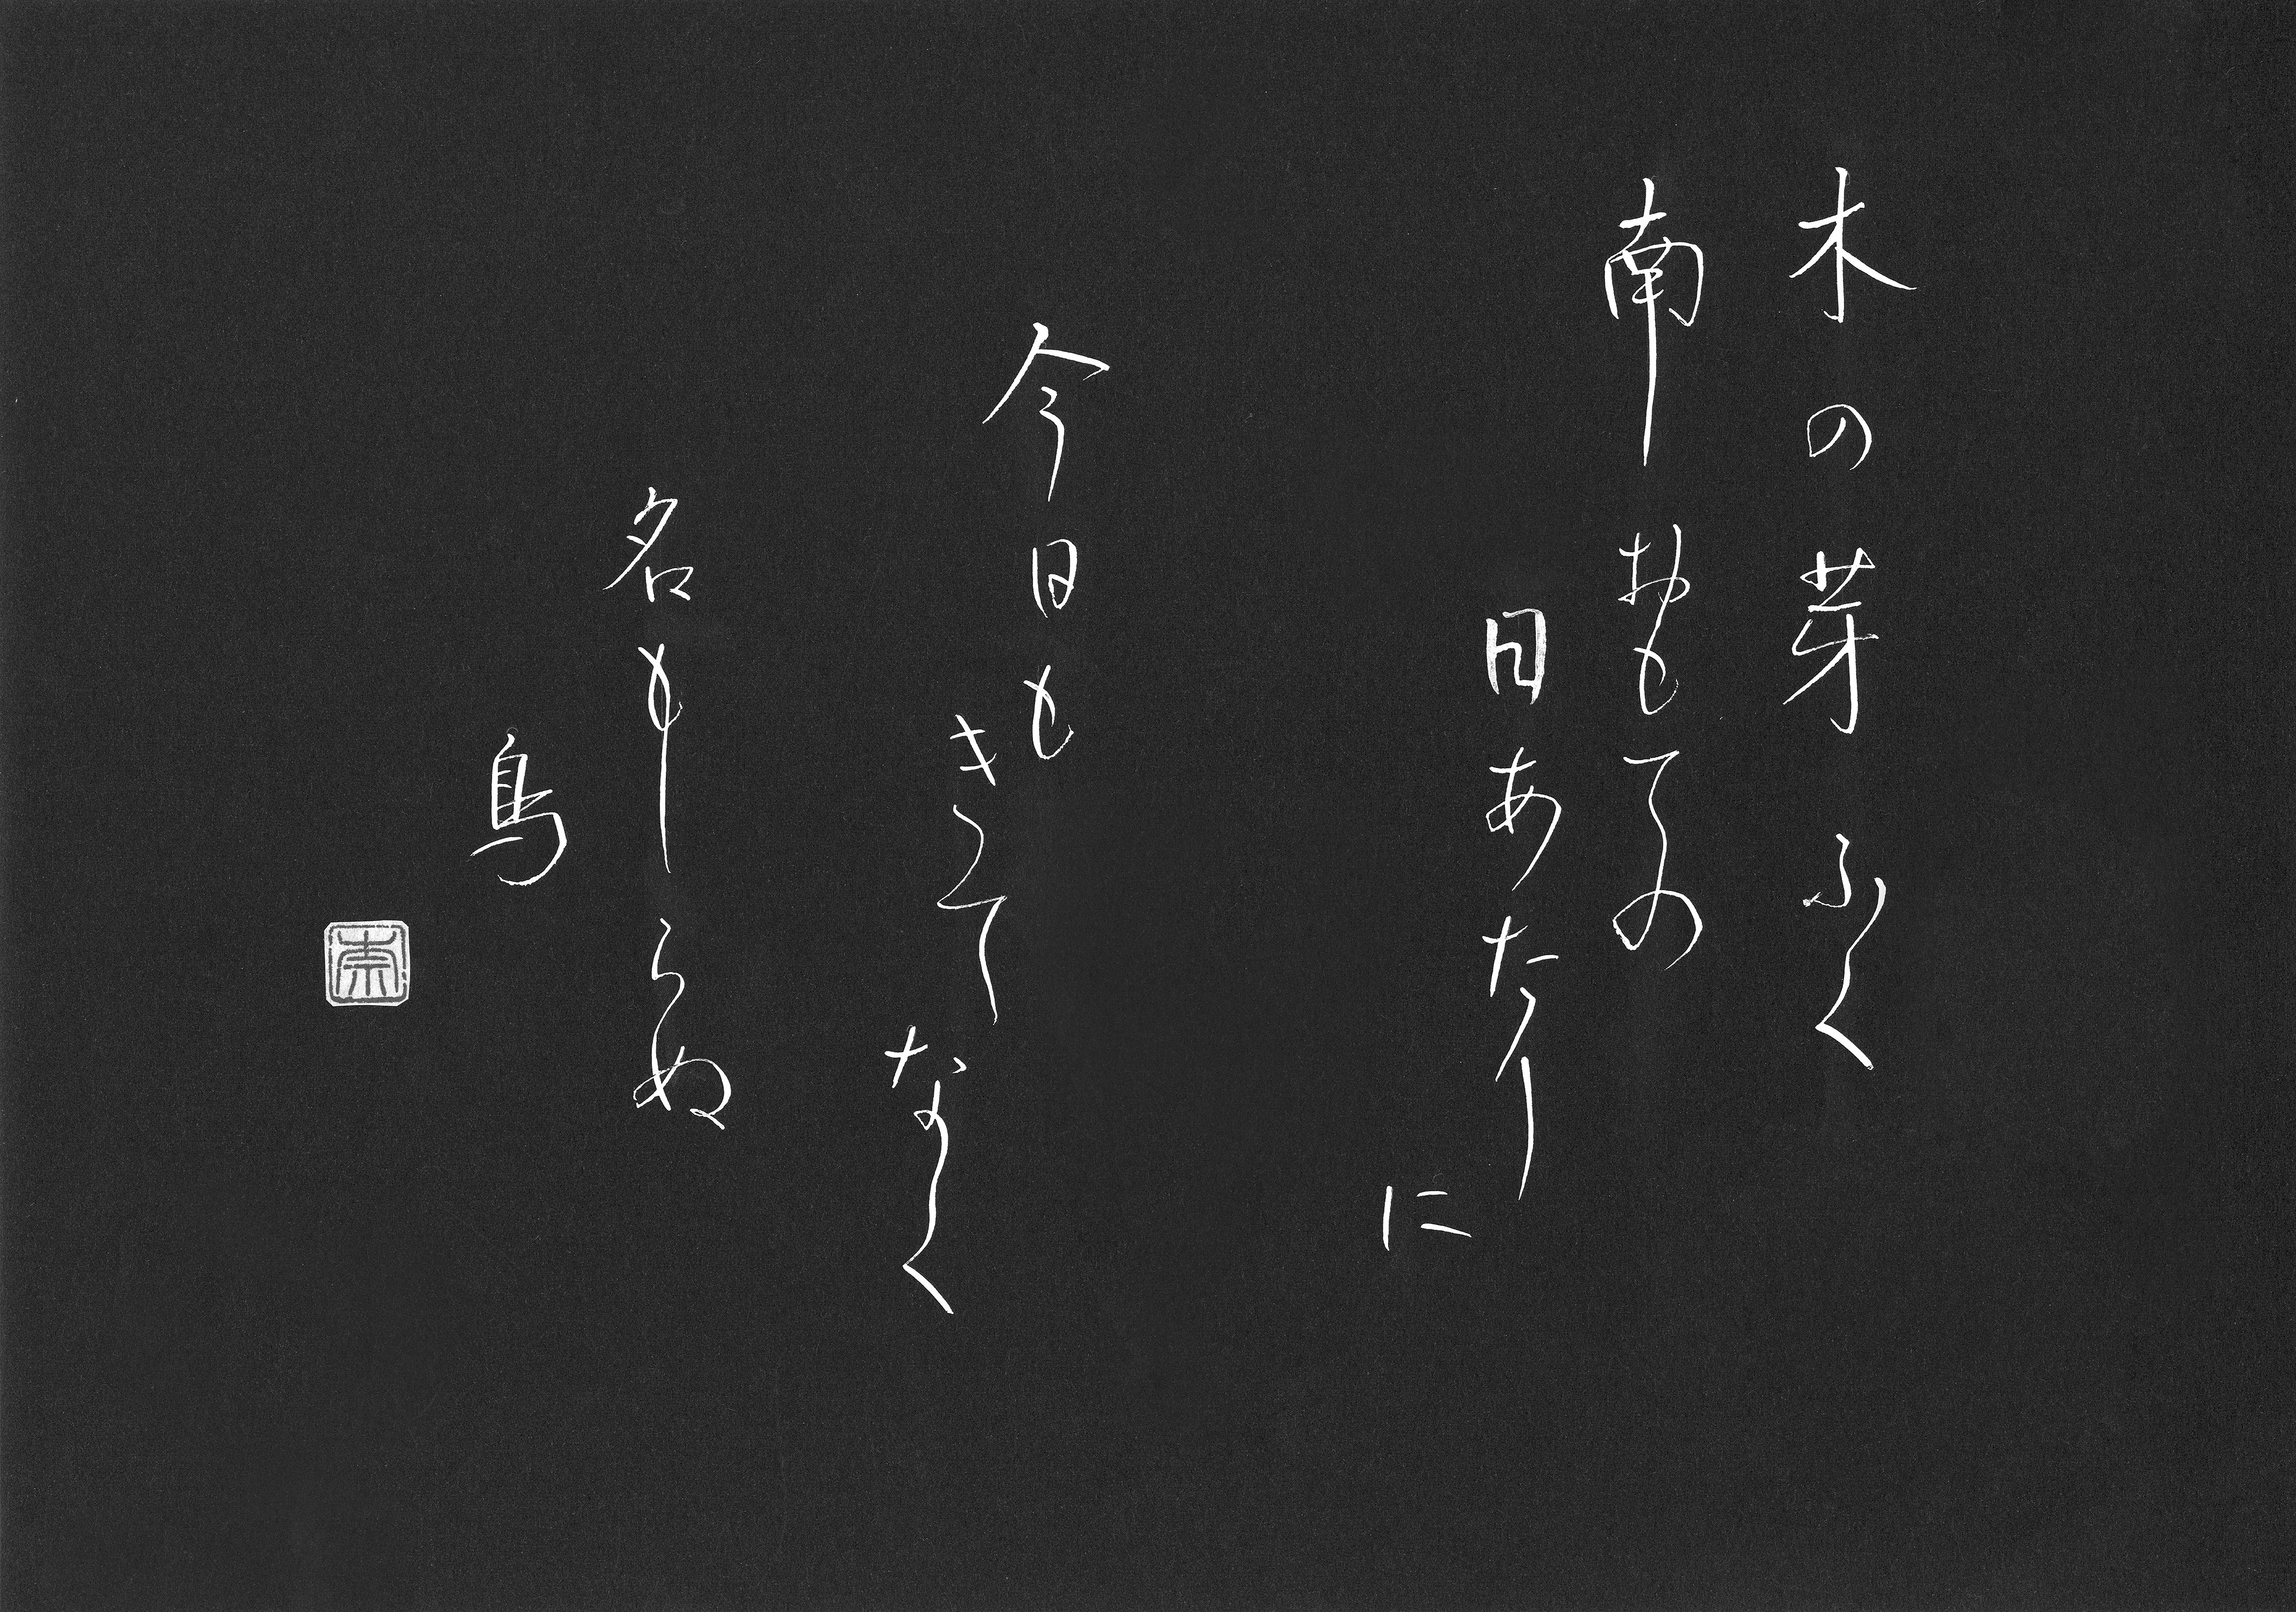 木の芽ふく
南おもての
日あたり
に
今日も
きて
なく
名もしらぬ
鳥